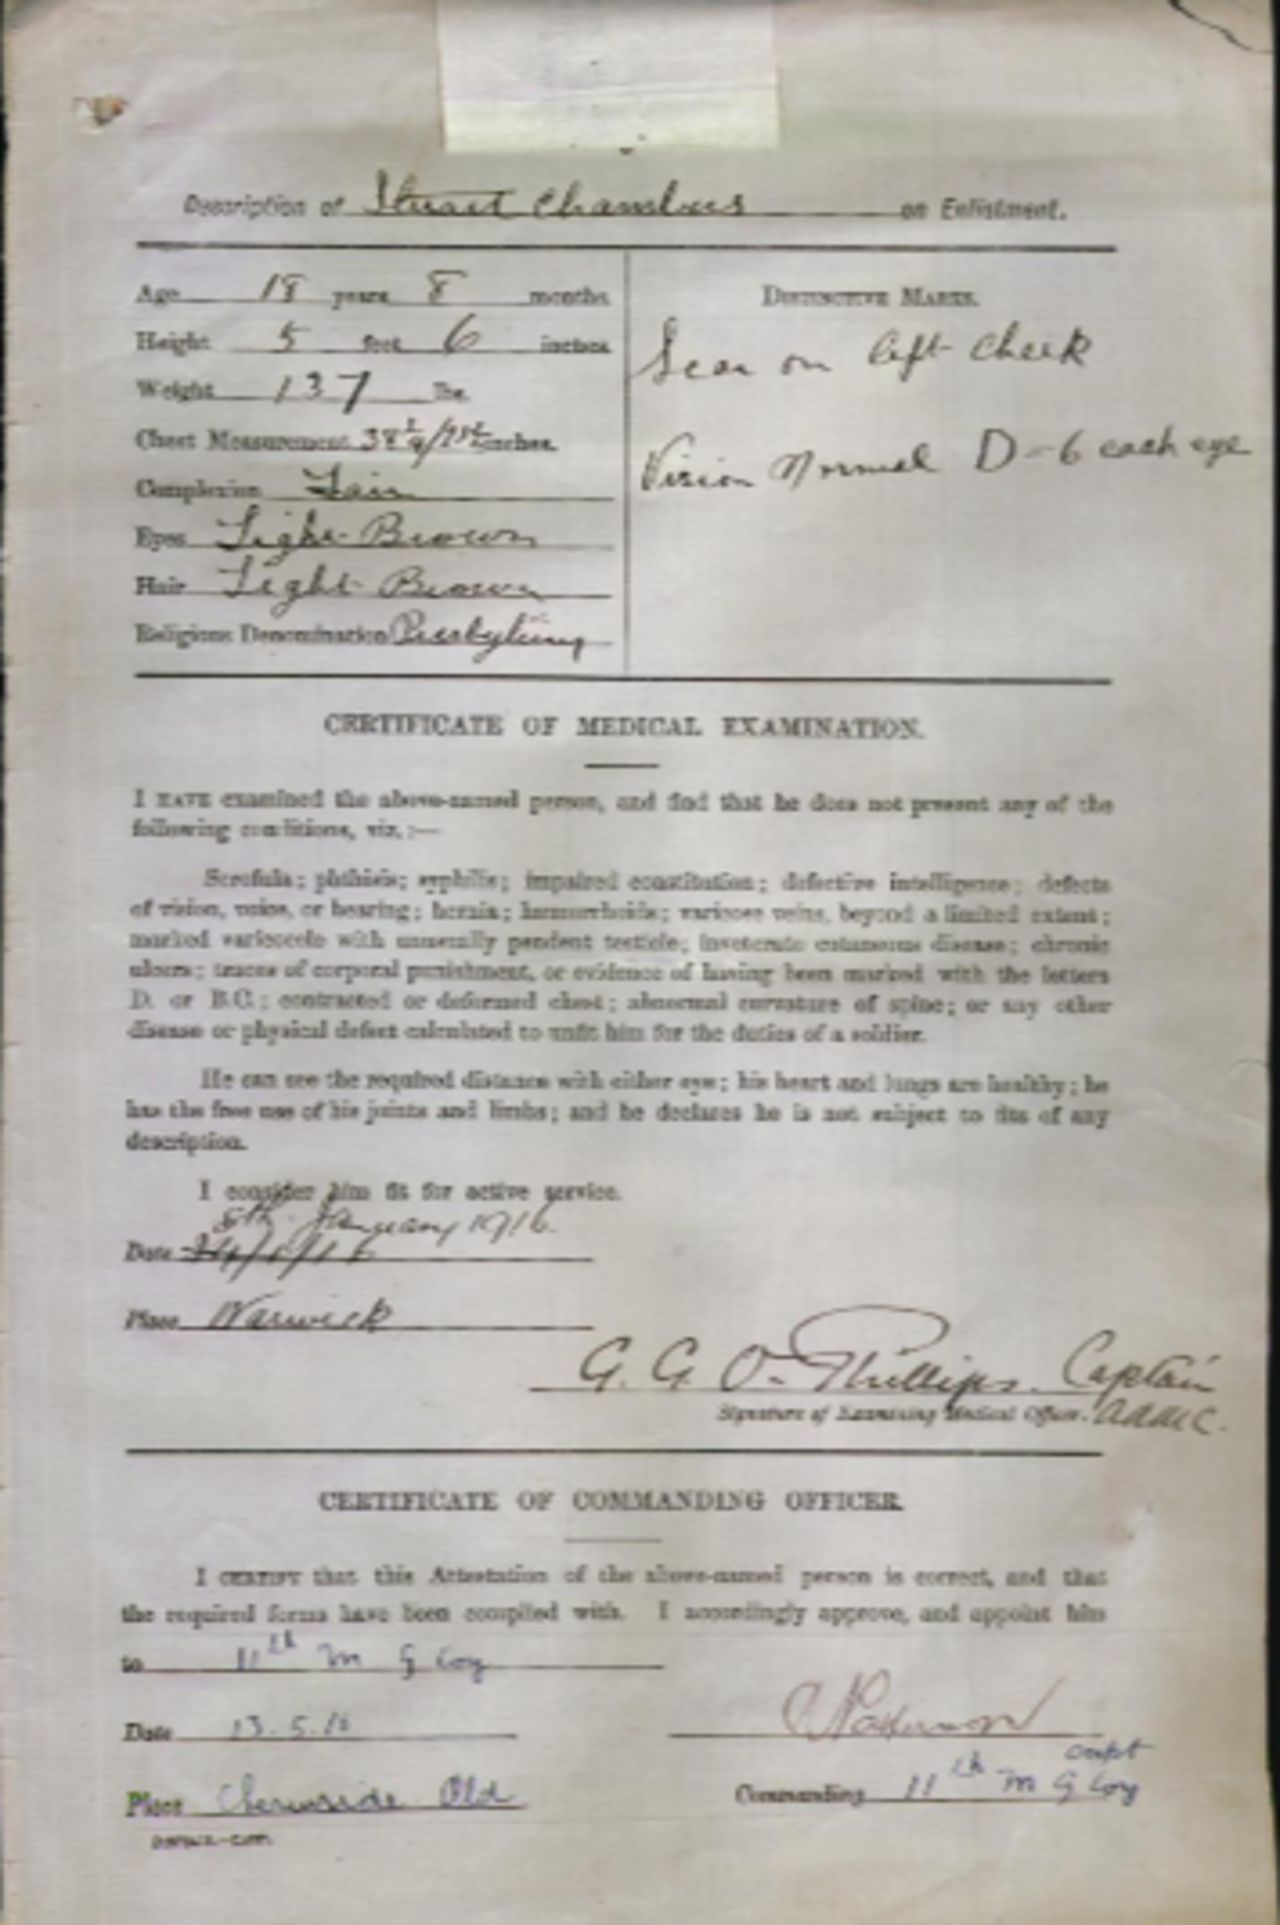 Description of Stuart Chambers on Enlistment.
Age 18 years 8 months
Height 5 feet 6 inches
Weight 137 lbs.
Chest Measurement inches
Complexion Fair
Eyes Light Brown
Hair Light Brown
Religious Denomination
DISTINCTIVE MARKS.
Scar on left cheek
Vision Normal D-6 each eye
CERTIFICATE OF MEDICAL EXAMINATION.
I HAVE examined the above-named person, and find that he does not present any of the
following conditions, viz. :—
Scrofula; phthisis; syphilis; impaired constitution; defective intelligence; defects
of vision, voice, or hearing; hernia; hæmorrhoids; varicose veins, beyond a limited extent;
marked varicocele with unusually pendent testicle; inveterate cutaneous disease; chronic
ulcers; traces of corporal punishment, or evidence of having been marked with the letters
D. or B.C.; contracted or deformed chest; abnormal curvature of spine; or any other
disease or physical defect calculated to unfit him for the duties of a soldier.
He can see the required distance with either eye; his heart and lungs are healthy; he
has the free use of his joints and limbs; and he declares he is not subject to fits of any
description.
I consider him fit for active service.
8th January 1916.
Date
Place Warwick
G. G. O. Phillips. Captain
Signature of Examining Medical Officer. AAMC.
CERTIFICATE OF COMMANDING OFFICER.
I CERTIFY that this Attestation of the above-named person is correct, and that
the required forms have been complied with. I accordingly approve, and appoint him
to 11th M G Coy
Date 13.5.16
capt
Place Qld
Commanding 11th M G Coy